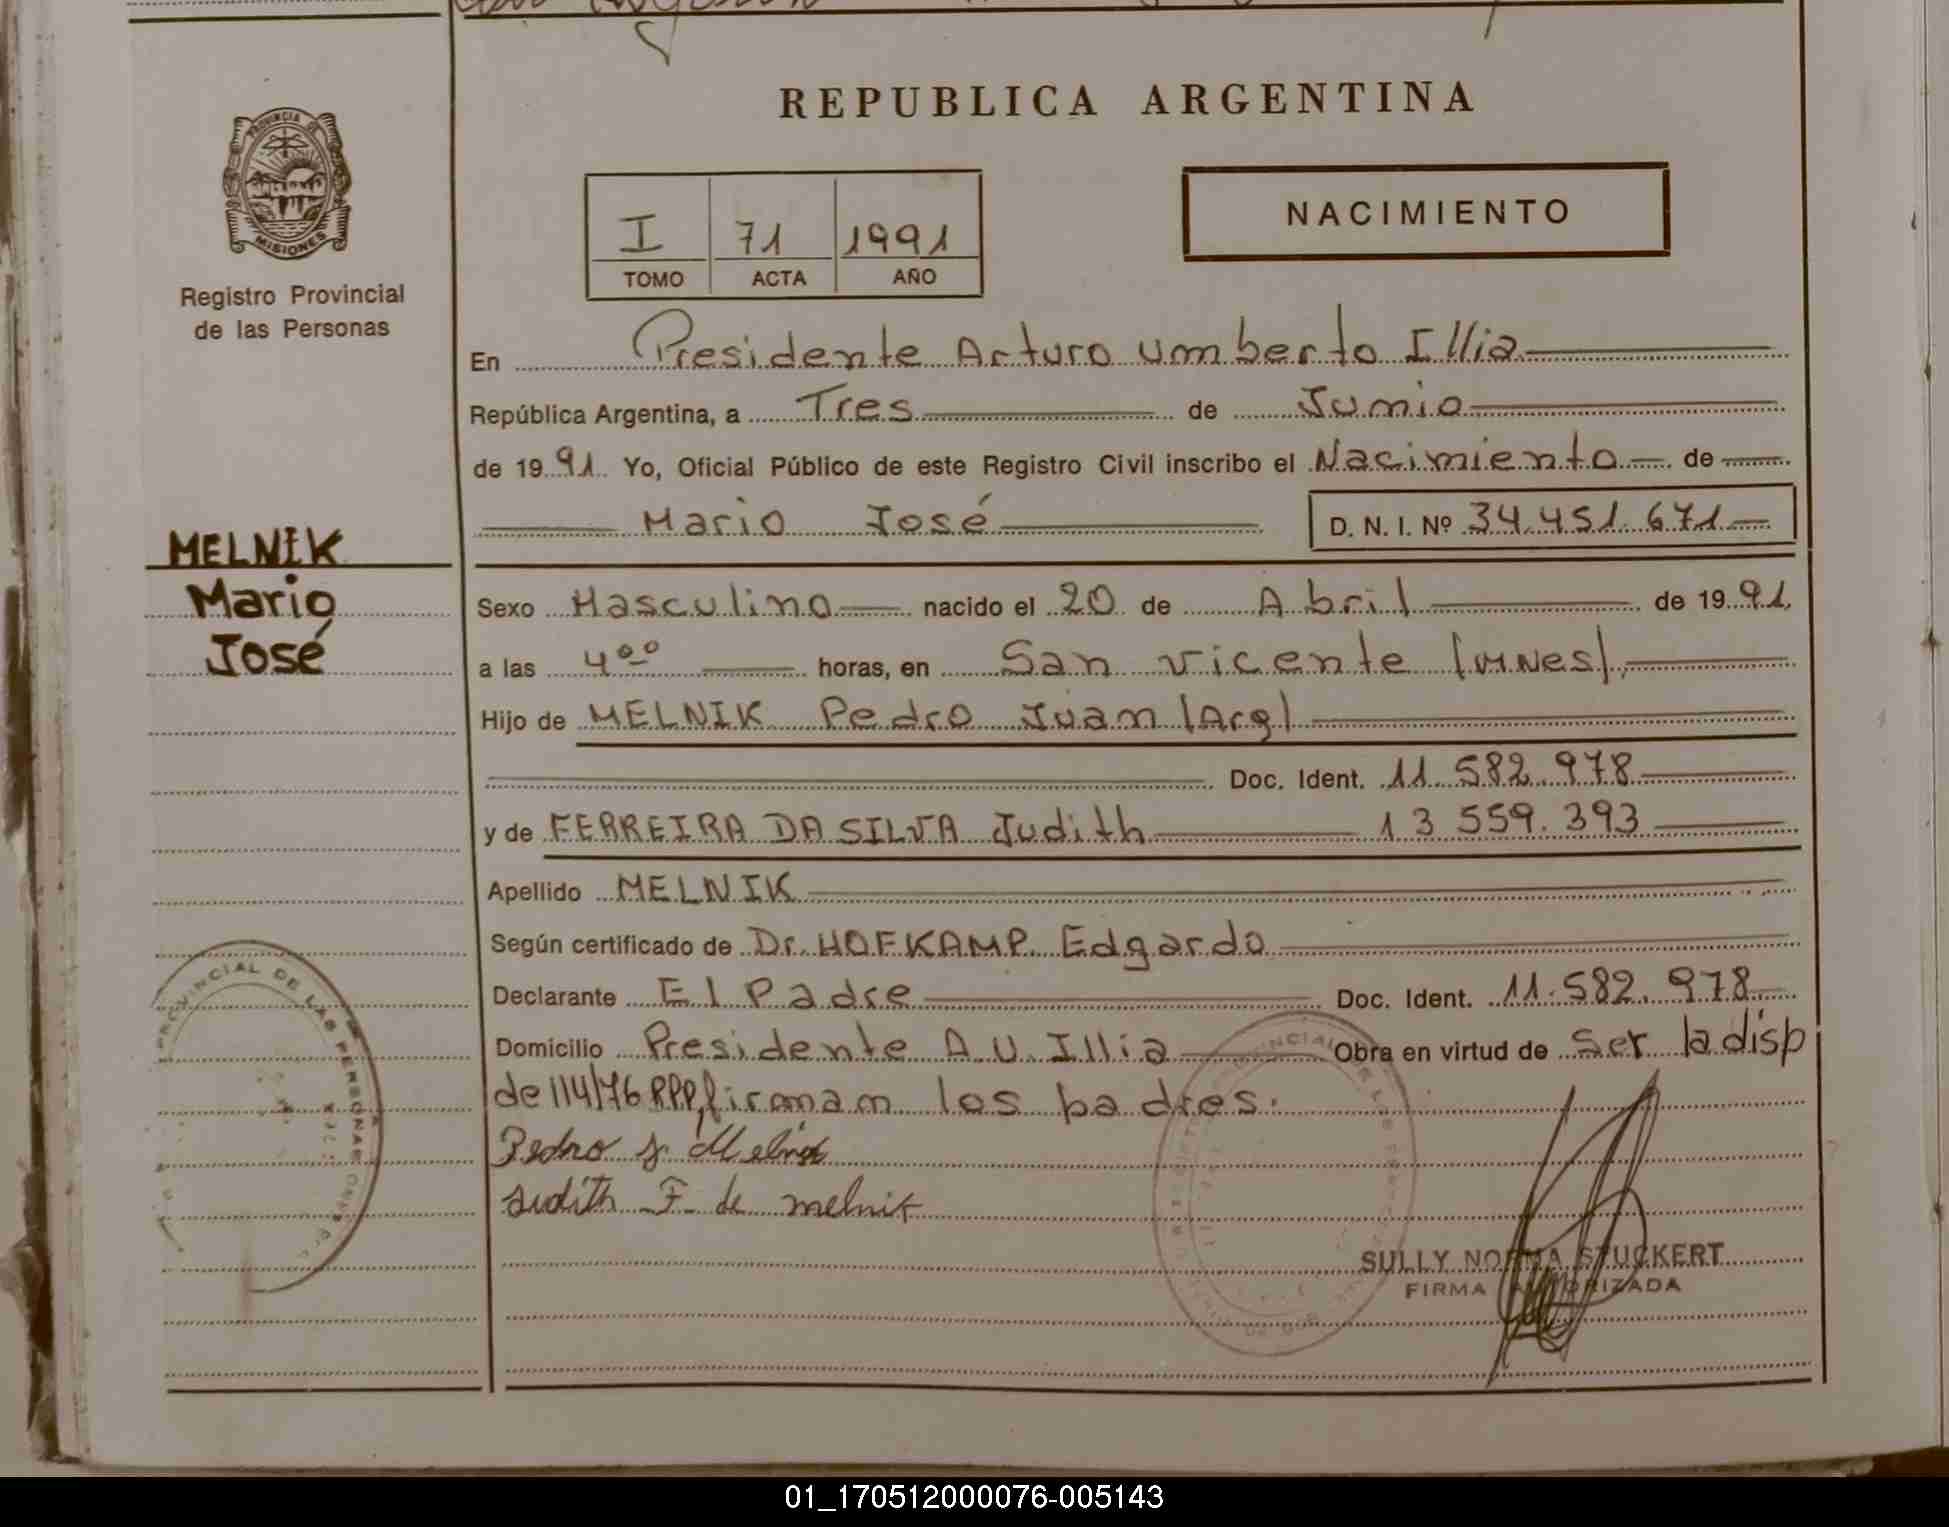 REPUBLICA ARGENTINA
PROVINCIA DE
MISIONES
Registro Provincial
de las Personas
I 71 1991
TOMO ACTA AÑO
NACIMIENTO
En Presidente Arturo Umberto Illia
República Argentina, a Tres de Junio
de 1991 Yo, Oficial Público de este Registro Civil inscribo el Nacimiento de
Mario José D. N. I. Nº 34.451.671
MELNIK
Mario
José
Sexo Masculino nacido el 20 de Abril de 1991,
a las 4⁰⁰ horas, en San Vicente (MNES),
Hijo de MELNIK Pedro Juan (Arg)
Doc. Ident. 11.582.978
y de FERREIRA DA SILVA Judith 13 559.393
Apellido MELNIK
Según certificado de Dr. HOFKAMP Edgardo
Declarante El Padre Doc. Ident. 11.582.978
Domicilio Presidente A.U. Illia Obra en virtud de Ser la disp
de 114/76 RPP, firman los padres.
Pedro J. Melnik
Judith F. de melnik
PROVINCIAL DE LAS PERSONAS
SULLY NORMA STUCKERT
FIRMA AUTORIZADA
01_170512000076-005143